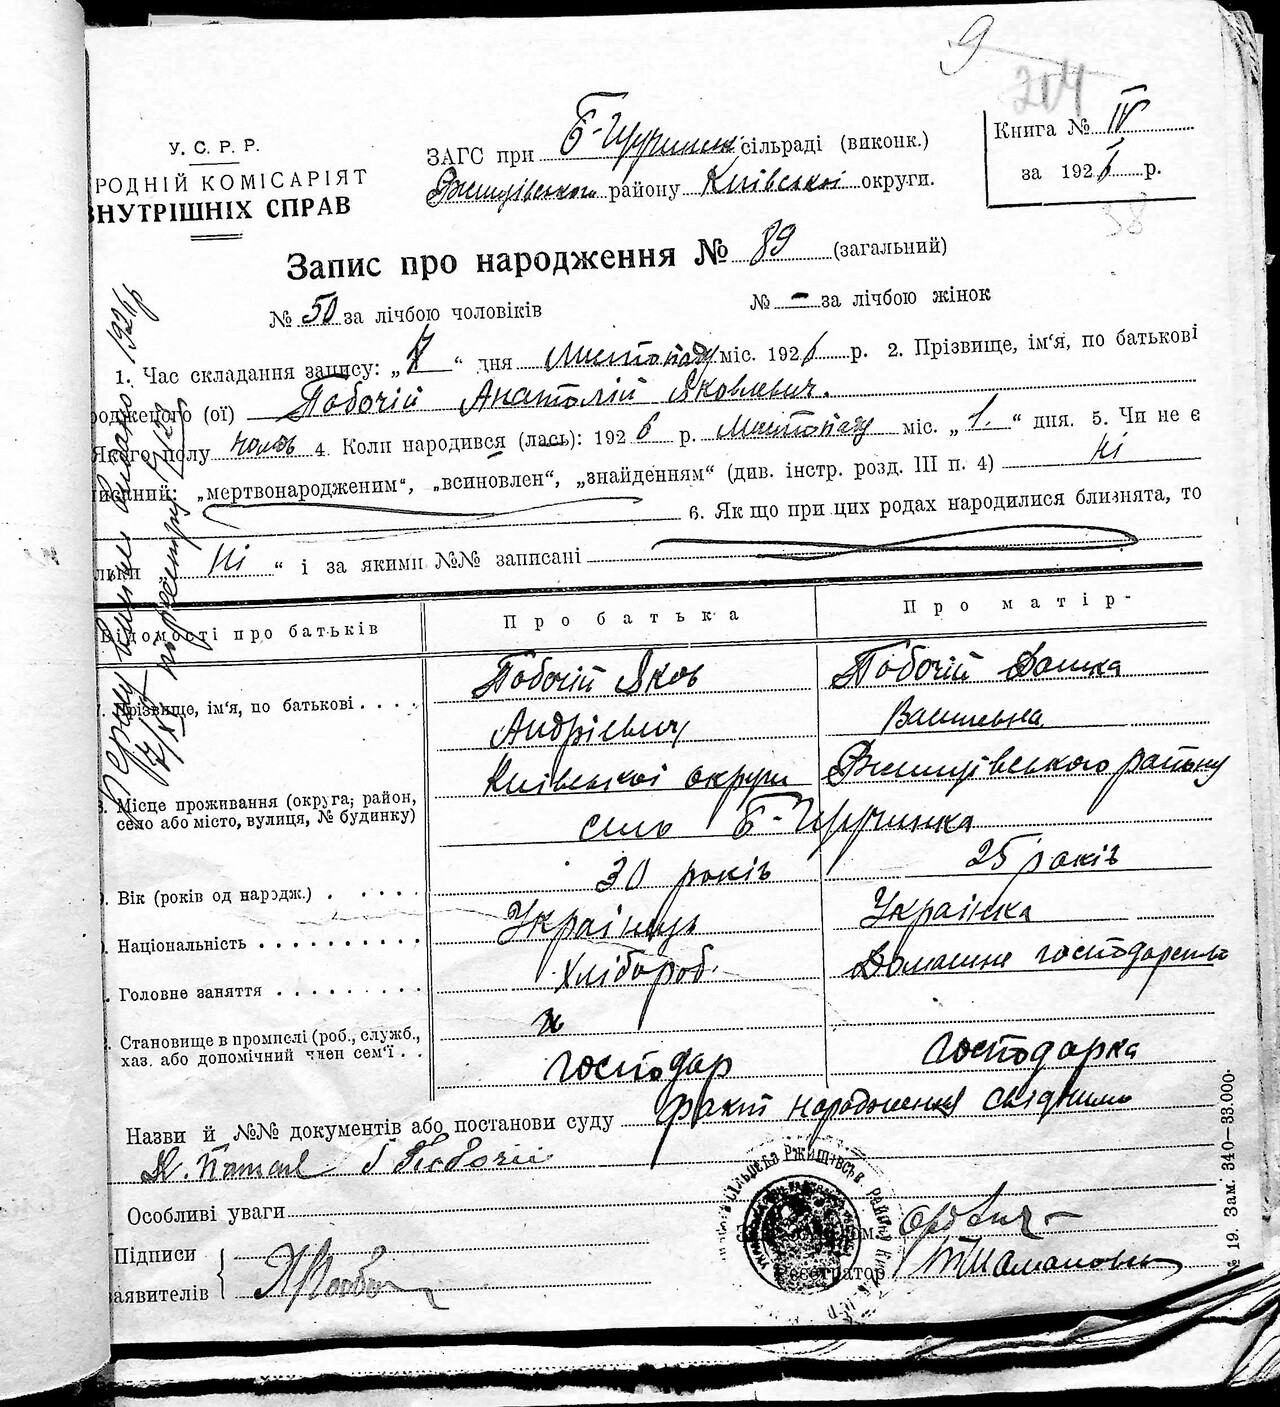 9
204
У. С. Р. Р.
РОДНІЙ КОМІСАРІЯТ
ВНУТРІШНІХ СПРАВ
ЗАГС при Б-Щучинк сільраді (виконк.)
Ржищівського району Київської округи.
Книга № IV
за 1926 р.
38
Запис про народження № 89 (загальний)
№ 50 за лічбою чоловіків № – за лічбою жінок
1. Час складання запису: „7“ дня Листопаду міс. 1926 р. 2. Прізвище, ім‘я, по батькові
родженого (ої) Побочій Анатолій Яковлевич.
Якого полу чолов 4. Коли народився (лась): 1926 р. Листопаду міс. „1.“ дня. 5. Чи не є
писаний: „мертвонародженим“, „всиновлен“, „знайденням“ (див. інстр. розд. III п. 4) ні
6. Як що при цих родах народилися близнята, то
льки Ні “ і за якими №№ записані
Відомості про батьків Про батька Про матір-
7. Прізвище, ім‘я, по батькові . . . . Побочій Яков Андрієвич Побочій Домка Васильевна
8. Місце проживання (округа, район, село або місто, вулиця, № будинку) Київської округи Ржищівського району
село Б-Щучинка
9. Вік (років од народж.) . . . . . 30 років 25 років
. Національність . . . . . . . . . . Українець Українка
. Головне заняття . . . . . . . . . Хлібороб. Домашнє господарство
. Становище в промислі (роб., служб., хаз. або допомічний член сем‘ї . . господар господарка
Назви й №№ документів або постанови суду факт народження свідчили
Особливі уваги
Підписи
заявителів
Реєстратор
№ 19. Зам. 340—33.000.